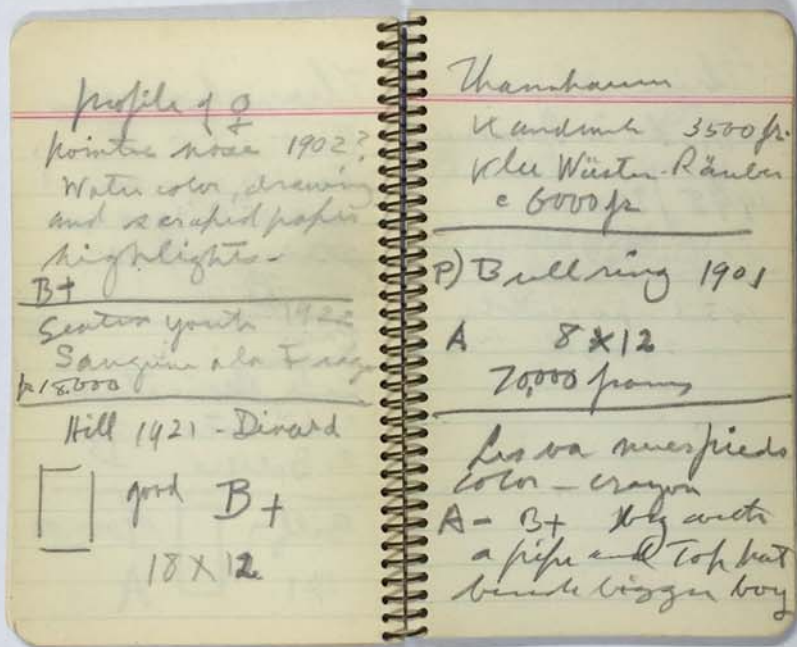 Profile of ♀
pointed nose 1902?
Water color, drawing
and scraped paper
highlights -
B+
Seated youth 1922
Sanguine a la
fr 18.000
Hill 1921 - Dinard
good B+
18 X 12
Thannhauser
3500 fr.
Klee Wüsten-Räuber
c 6000 fr
P) Bull ring 1901
A 8 X 12
70,000 francs
color - crayon
A - B+ boy with
a pipe and Top hat
beside bigger boy